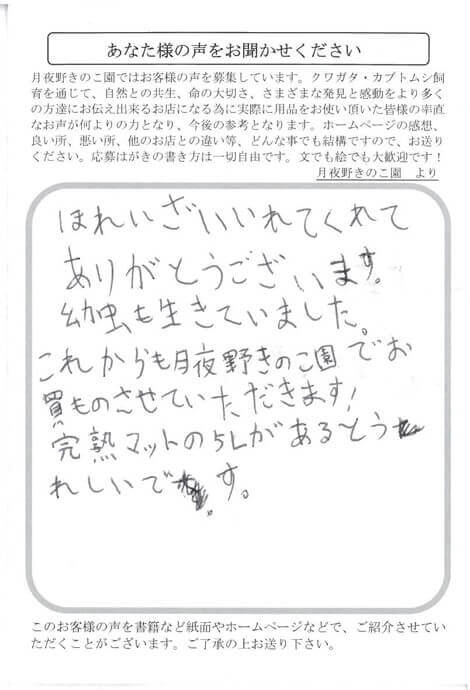 あなた様の声をお聞かせください
月夜野きのこ園ではお客様の声を募集しています。クワガタ・カブトムシ飼
育を通じて、自然との共生、命の大切さ、さまざまな発見と感動をより多く
の方達にお伝え出来るお店になる為に実際に用品をお使い頂いた皆様の率直
なお声が何よりの力となり、今後の参考となります。ホームページの感想、
良い所、悪い所、他のお店との違い等、どんな事でも結構ですので、お送り
ください。応募はがきの書き方は一切自由です。文でも絵でも大歓迎です！
月夜野きのこ園　より
ほれいざいいれてくれて
ありがとうございます。
幼虫も生きていました。
これからも月夜野きのこ園でお
買ものさせていただきます！
完熟マットの5Lがあるとう
れしいです。
このお客様の声を書籍など紙面やホームページなどで、ご紹介させてい
ただくことがございます。ご了承の上お送り下さい。